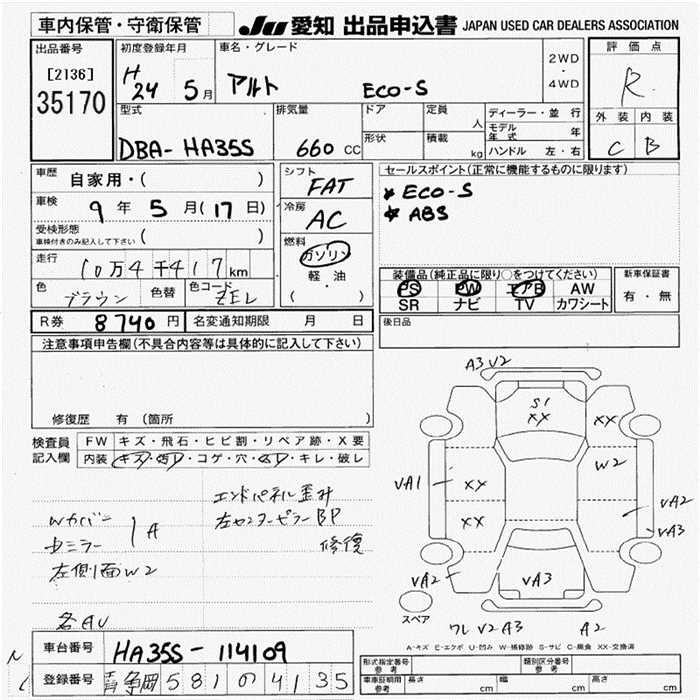 車内保管・守衛保管
JU 愛知 出品申込書 JAPAN USED CAR DEALERS ASSOCIATION
出品番号
[2136]
35170
初度登録年月
H 24 5月
車名・グレード
アルト ECO-S
2WD
・
4WD
評価点
R
外装 内装
C B
型式
DBA-HA35S
排気量
660 CC
ドア
形状
定員
人
積載
kg
ディーラー・並行
モデル年式 年
ハンドル 左・右
車歴
自家用・( )
車検
9年5月(17日)
受検形態
車検付きのみ記入して下さい ( )
走行
10万4千417km
色
ブラウン
色替
色コード
ZEL
シフト
FAT
冷房
AC
燃料
ガソリン
軽・油
( )
セールスポイント(正常に機能するものに限ります)
* ECO-S
* ABS
装備品(純正品に限り○をつけてください)
PS PW エアB AW
SR ナビ TV カワシート
新車保証書
有・無
R券 8740円
名変通知期限 月 日
後日品
注意事項申告欄(不具合内容等は具体的に記入して下さい)
修復歴 有 (箇所 )
検査員記入欄
FW キズ・飛石・ヒビ割・リペア跡・X要
内装 キズ・汚れ・コゲ・穴・・キレ・破レ
エンドパネル歪み
左センターピラーBP
修復
Wカバー
ミラー
A
左側面W2
各AU
A3 V2
S1
XX
XX
W2
VA1
XX
XX
VA2
VA3
VA2
VA3
スペア
ワレ V2 A3
A2
A-キズ E-エクボ U-凹み W-補修跡 S-サビ C-腐食 XX-交換済
車台番号
HA35S-114109
登録番号
静岡581の4135
形式指定番号
参考
類別区分番号
参考
車庫証明用
参考
長さ cm
幅 cm
高さ cm